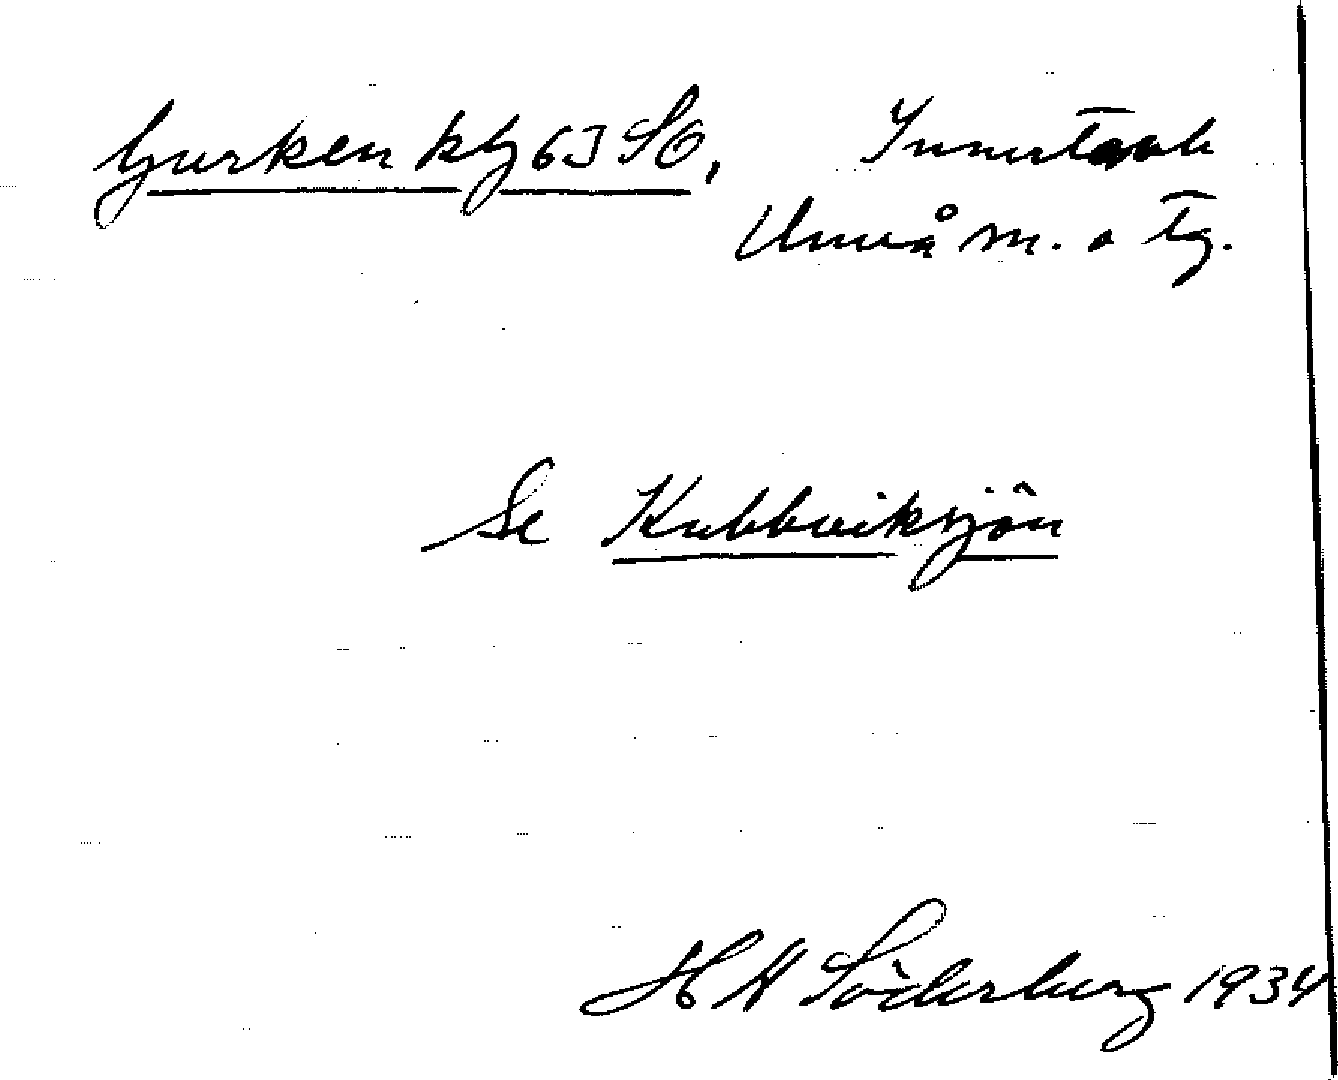 Gurken kbg 63 SO, Innertavle
Umeå m. o tg.
Se Kubbviksjön
H W Söderberg 1934